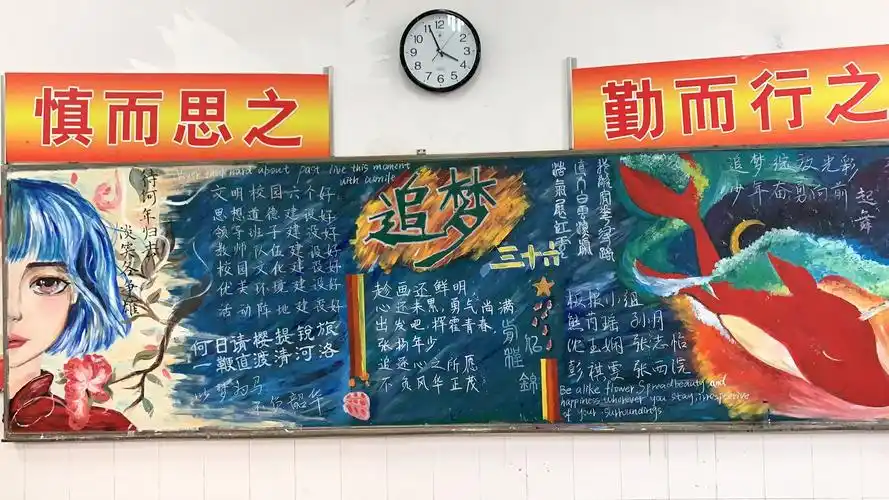 慎而思之
勤而行之
12
1
2
3
4
5
6
7
8
9
10
11
Never think hard about past live this moment
with a smile
待何年归去
谈笑各争雄
文明校园六个好
思想道德建设好
领导班子建设好
教师队伍建设好
校园文化建设好
优美环境建设好
活动阵地建设好
何日请缨提锐旅
一鞭直渡清河洛
以梦为马
不负韶华
追梦
三十六
趁画还鲜明，
心还未累，勇气尚满
出发吧，挥霍青春，
张扬年少
追逐心之所愿
不负风华正茂
追梦绽放光彩
少年奋勇向前
起舞
板报小组
熊芮瑶 孙月
沈玉娴 张志怡
彭祺雯 张西浣
Be alike flower. Spread beauty and
happiness wherever you stay, irrespective
of your surroundings